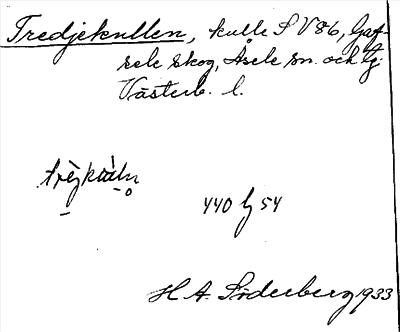 Tredjekullen, kulle S V86, Gaf-
sele skog, Åsele sn. och lg.
Västerb. l.
440 lj 54
H. A. Söderberg 1933